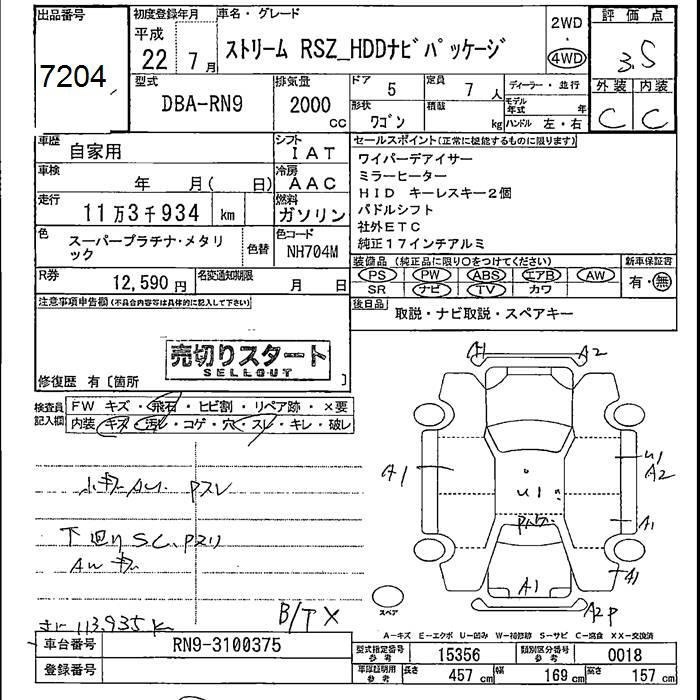 出品番号
7204
初度登録年月
平成
22 7月
車名・グレード
ストリーム RSZ_HDDナビパッケージ
2WD
・
4WD
評価点
3.5
外装 内装
C C
型式
DBA-RN9
排気量
2000
CC
ドア
5
定員
7人
ディーラー・並行
形状
ワゴン
積載
kg
モデル年式 年
ハンドル 左・右
車歴
自家用
シフト
IAT
車検
年 月( 日)
冷房
AAC
走行
11万3千934 km
燃料
ガソリン
色
スーパープラチナ・メタリック
色替
色コード
NH704M
R券
12,590円
名変通知期限
月 日
セールスポイント(正常に機能するものに限ります)
ワイパーデアイサー
ミラーヒーター
HID キーレスキー2個
パドルシフト
社外ETC
純正17インチアルミ
装備品(純正品に限り○をつけてください)
PS PW ABS エアB AW
SR ナビ TV カワ
新車保証書
有・無
後日品
取説・ナビ取説・スペアキー
注意事項申告欄(不具合内容等は具体的に記入して下さい)
売切りスタート
SELLOUT
修復歴 有〔箇所 〕
検査員記入欄
FW キズ・飛石・ヒビ割・リペア跡・×要
内装 キズ・汚レ・コゲ・穴・スレ・キレ・破レ
下廻りSC、
113,935K
B/TX
A1 A2
A1
U1
U1
A2
A1
A1
A1
A2P
スペア
A-キズ E-エクボ U-凹み W-補修跡 S-サビ C-腐食 XX-交換済
車台番号
RN9-3100375
登録番号
型式指定番号 参考
15356
類別区分番号 参考
0018
車庫証明用 参考
長さ 457cm 幅 169cm 高さ 157cm